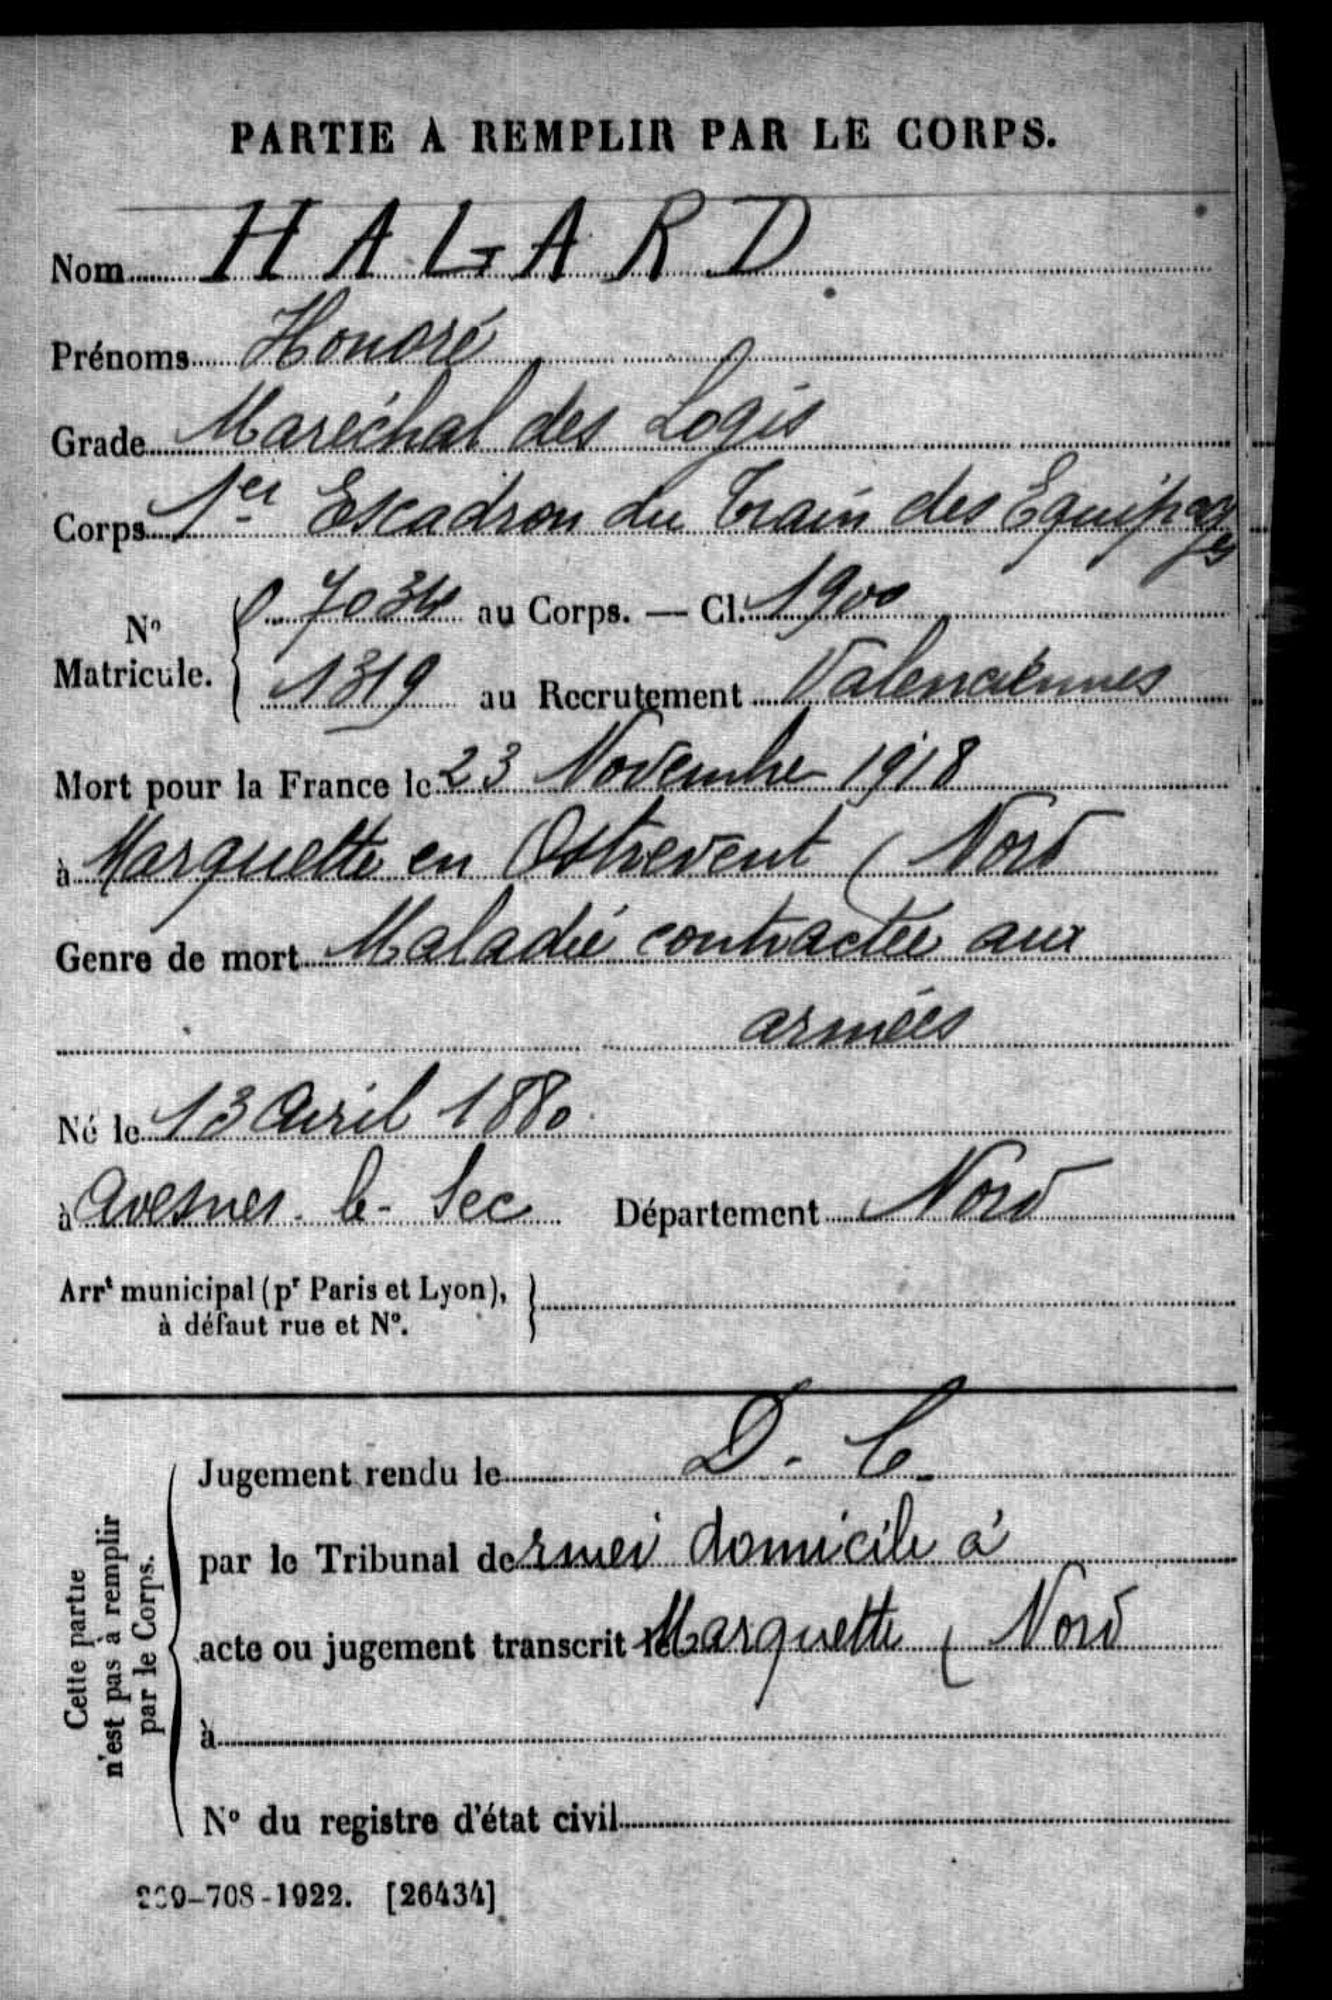 PARTIE A REMPLIR PAR LE CORPS.
Nom HAGARD
Prénoms Honoré
Grade Maréchal des Logis
Corps 1er Escadron du Train des Equipages
N° Matricule. 7034 au Corps. — Cl. 1900
1319 au Recrutement Valenciennes
Mort pour la France le 23 Novembre 1918
à Marquette en Ostrevent (Nord
Genre de mort Maladie contractée aux
armées
Né le 13 Avril 1880
à Avesnes-le-Sec Département Nord
Arrt municipal (pr Paris et Lyon),
à défaut rue et N°.
Cette partie
n'est pas à remplir
par le Corps.
Jugement rendu le D. C.
par le Tribunal de domicile à
acte ou jugement transcrit le Marquette (Nord
à
N° du registre d'état civil
-708-1922. [26434]